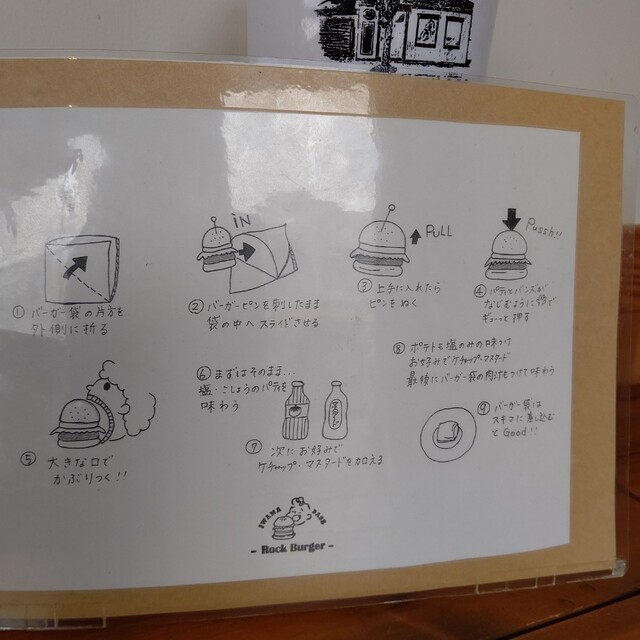 ① バーガー袋の片方を
外側に折る
IN
② バーガーピンを刺したまま
袋の中へスライドさせる
PULL
③ 上手に入れたら
ピンをぬく
Pussh!!
④ パティとバンズが
なじむように指で
ギューっと押す
⑤ 大きな口で
かぶりつく!!
⑥ まずはそのまま…
塩・こしょうのパティを
味わう
⑦ 次にお好みで
ケチャップ・マスタードを加える
⑧ ポテトも塩のみの味つけ
お好みでケチャップ・マスタード
最後にバーガー袋の肉汁をつけて味わう
⑨ バーガー袋は
スキマに差し込む
とGood!!
IWAMA BASE
- Rock Burger -